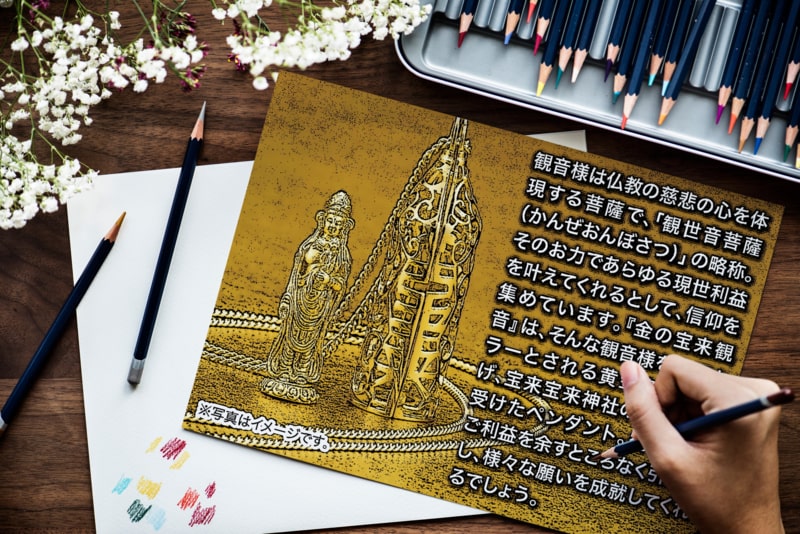 観音様は仏教の慈悲の心を体
現する菩薩で、「観世音菩薩
(かんぜおんぼさつ)」の略称。
そのお力であらゆる現世利益
を叶えてくれるとして、信仰を
集めています。『金の宝来観
音』は、そんな観音様
ラーとされる黄
げ、宝来宝来神社の
受けたペンダント。
ご利益を余すところなく
し、様々な願いを成就してくれ
るでしょう。
※写真はイメージです。